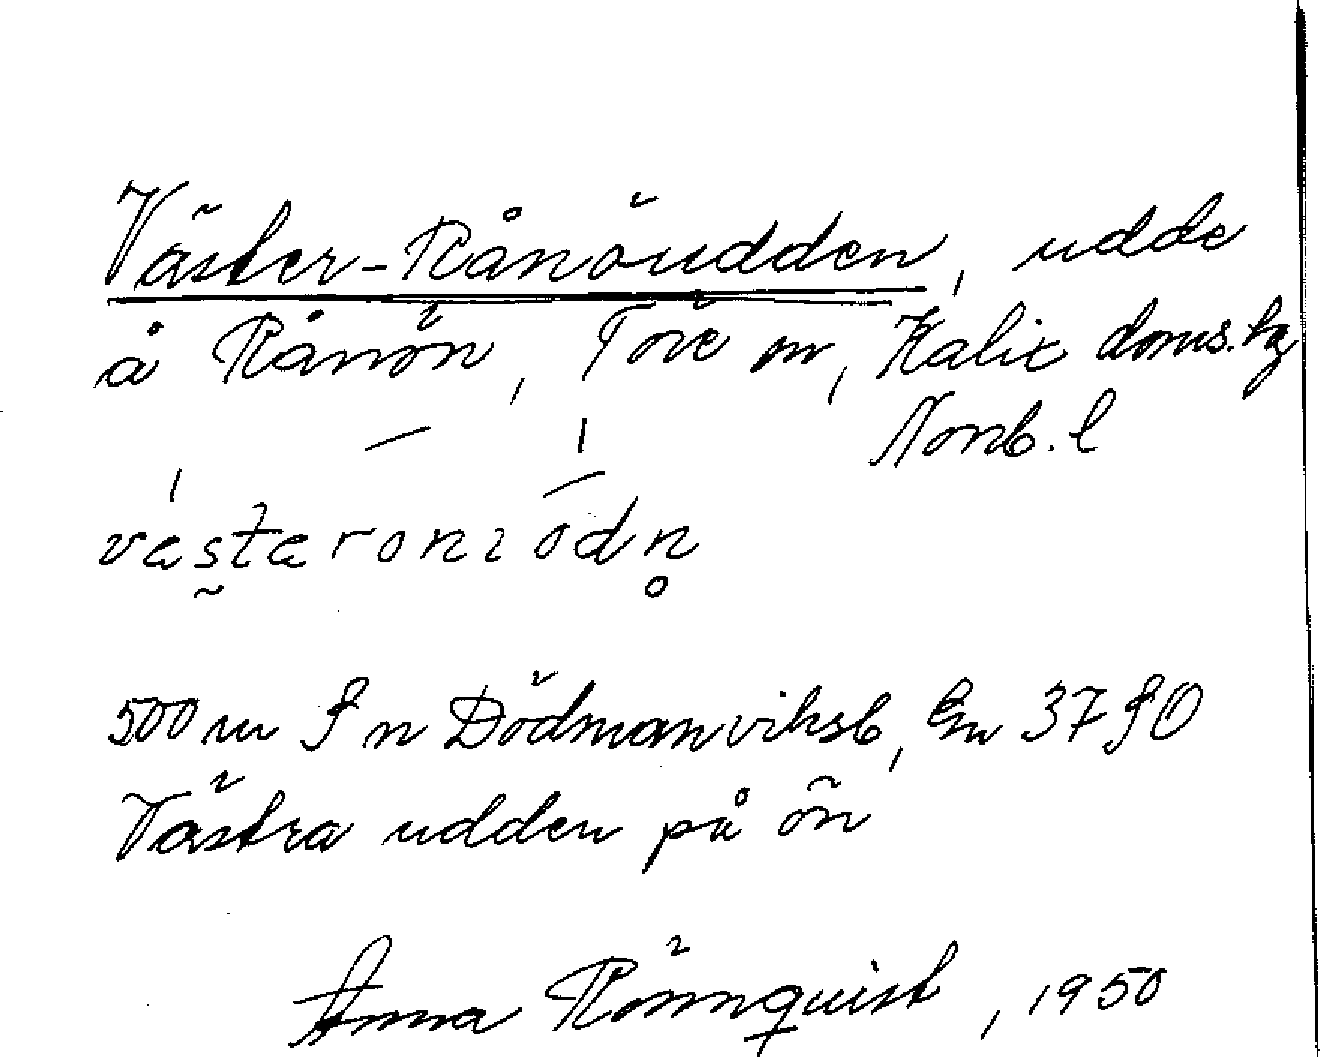 Väster-Rånöudden, udde
å Rånön, Töre sn, Kalix doms. hg
Norrb. l
500 m S n Dödmanviksb, Gn 37 SO
Västra udden på ön
Anna Rönnquist, 1950